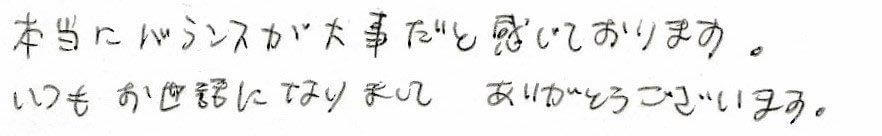 本当にバランスが大事だと感じております。
いつもお世話になりまして ありがとうございます。